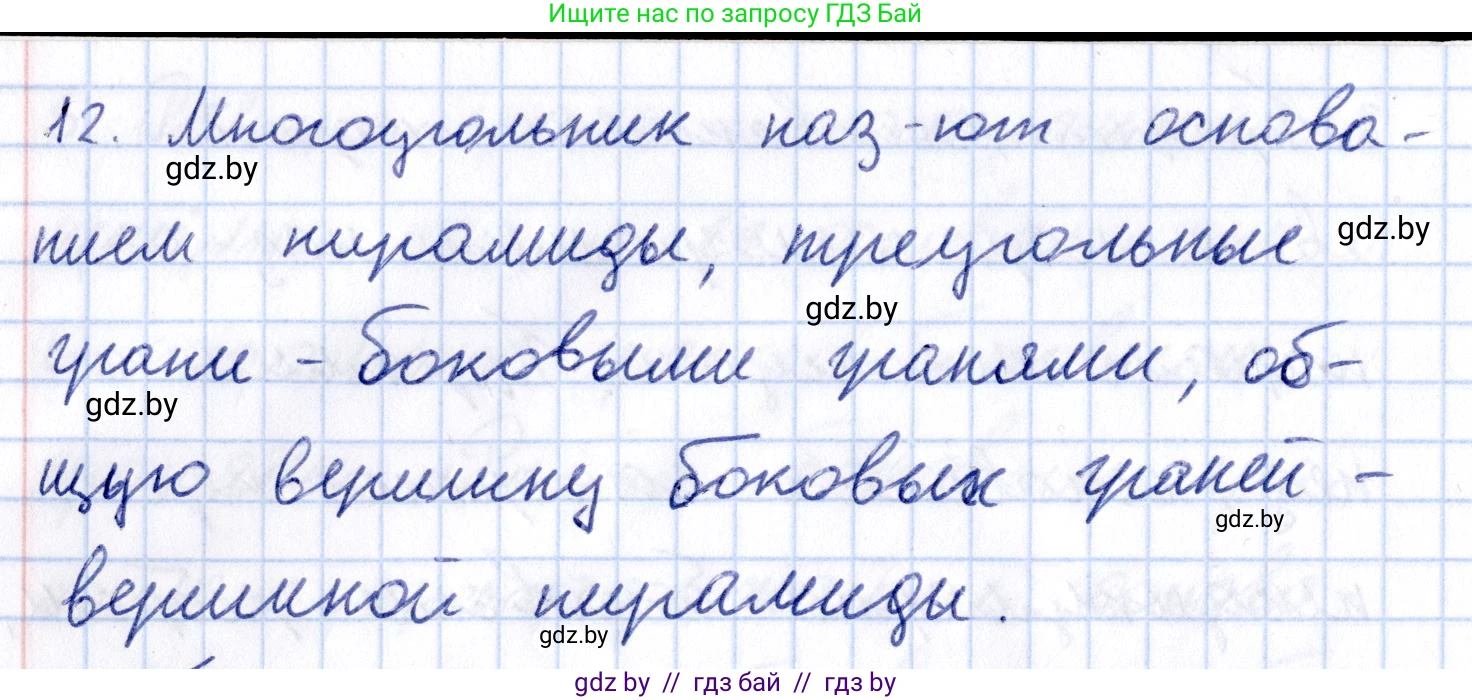 Ищите нас по запросу ГДЗ Бай
12. Многоугольник наз-ют основа-
gdz.by
нием пирамиды, треугольные
gdz.by
gdz.by
грани - боковыми гранями, об-
gdz.by
щую вершину боковых граней -
gdz.by
вершиной пирамиды.
gdz.by
gdz by // гдз бай // гдз by